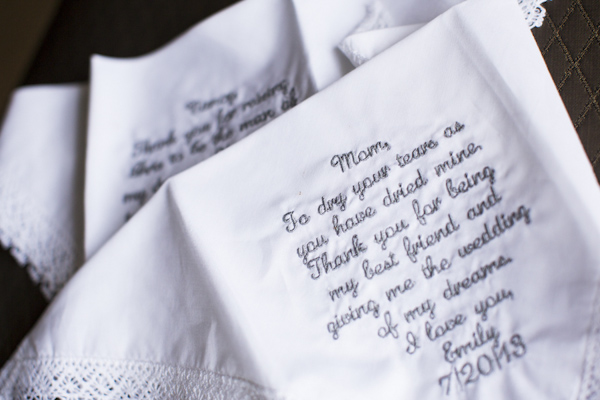 Mom,
To dry your tears as
you have dried mine.
Thank you for being
my best friend and
giving me the wedding
of my dreams.
I love you,
Emily
7|20|13
Thank you for raising
to be the man
my